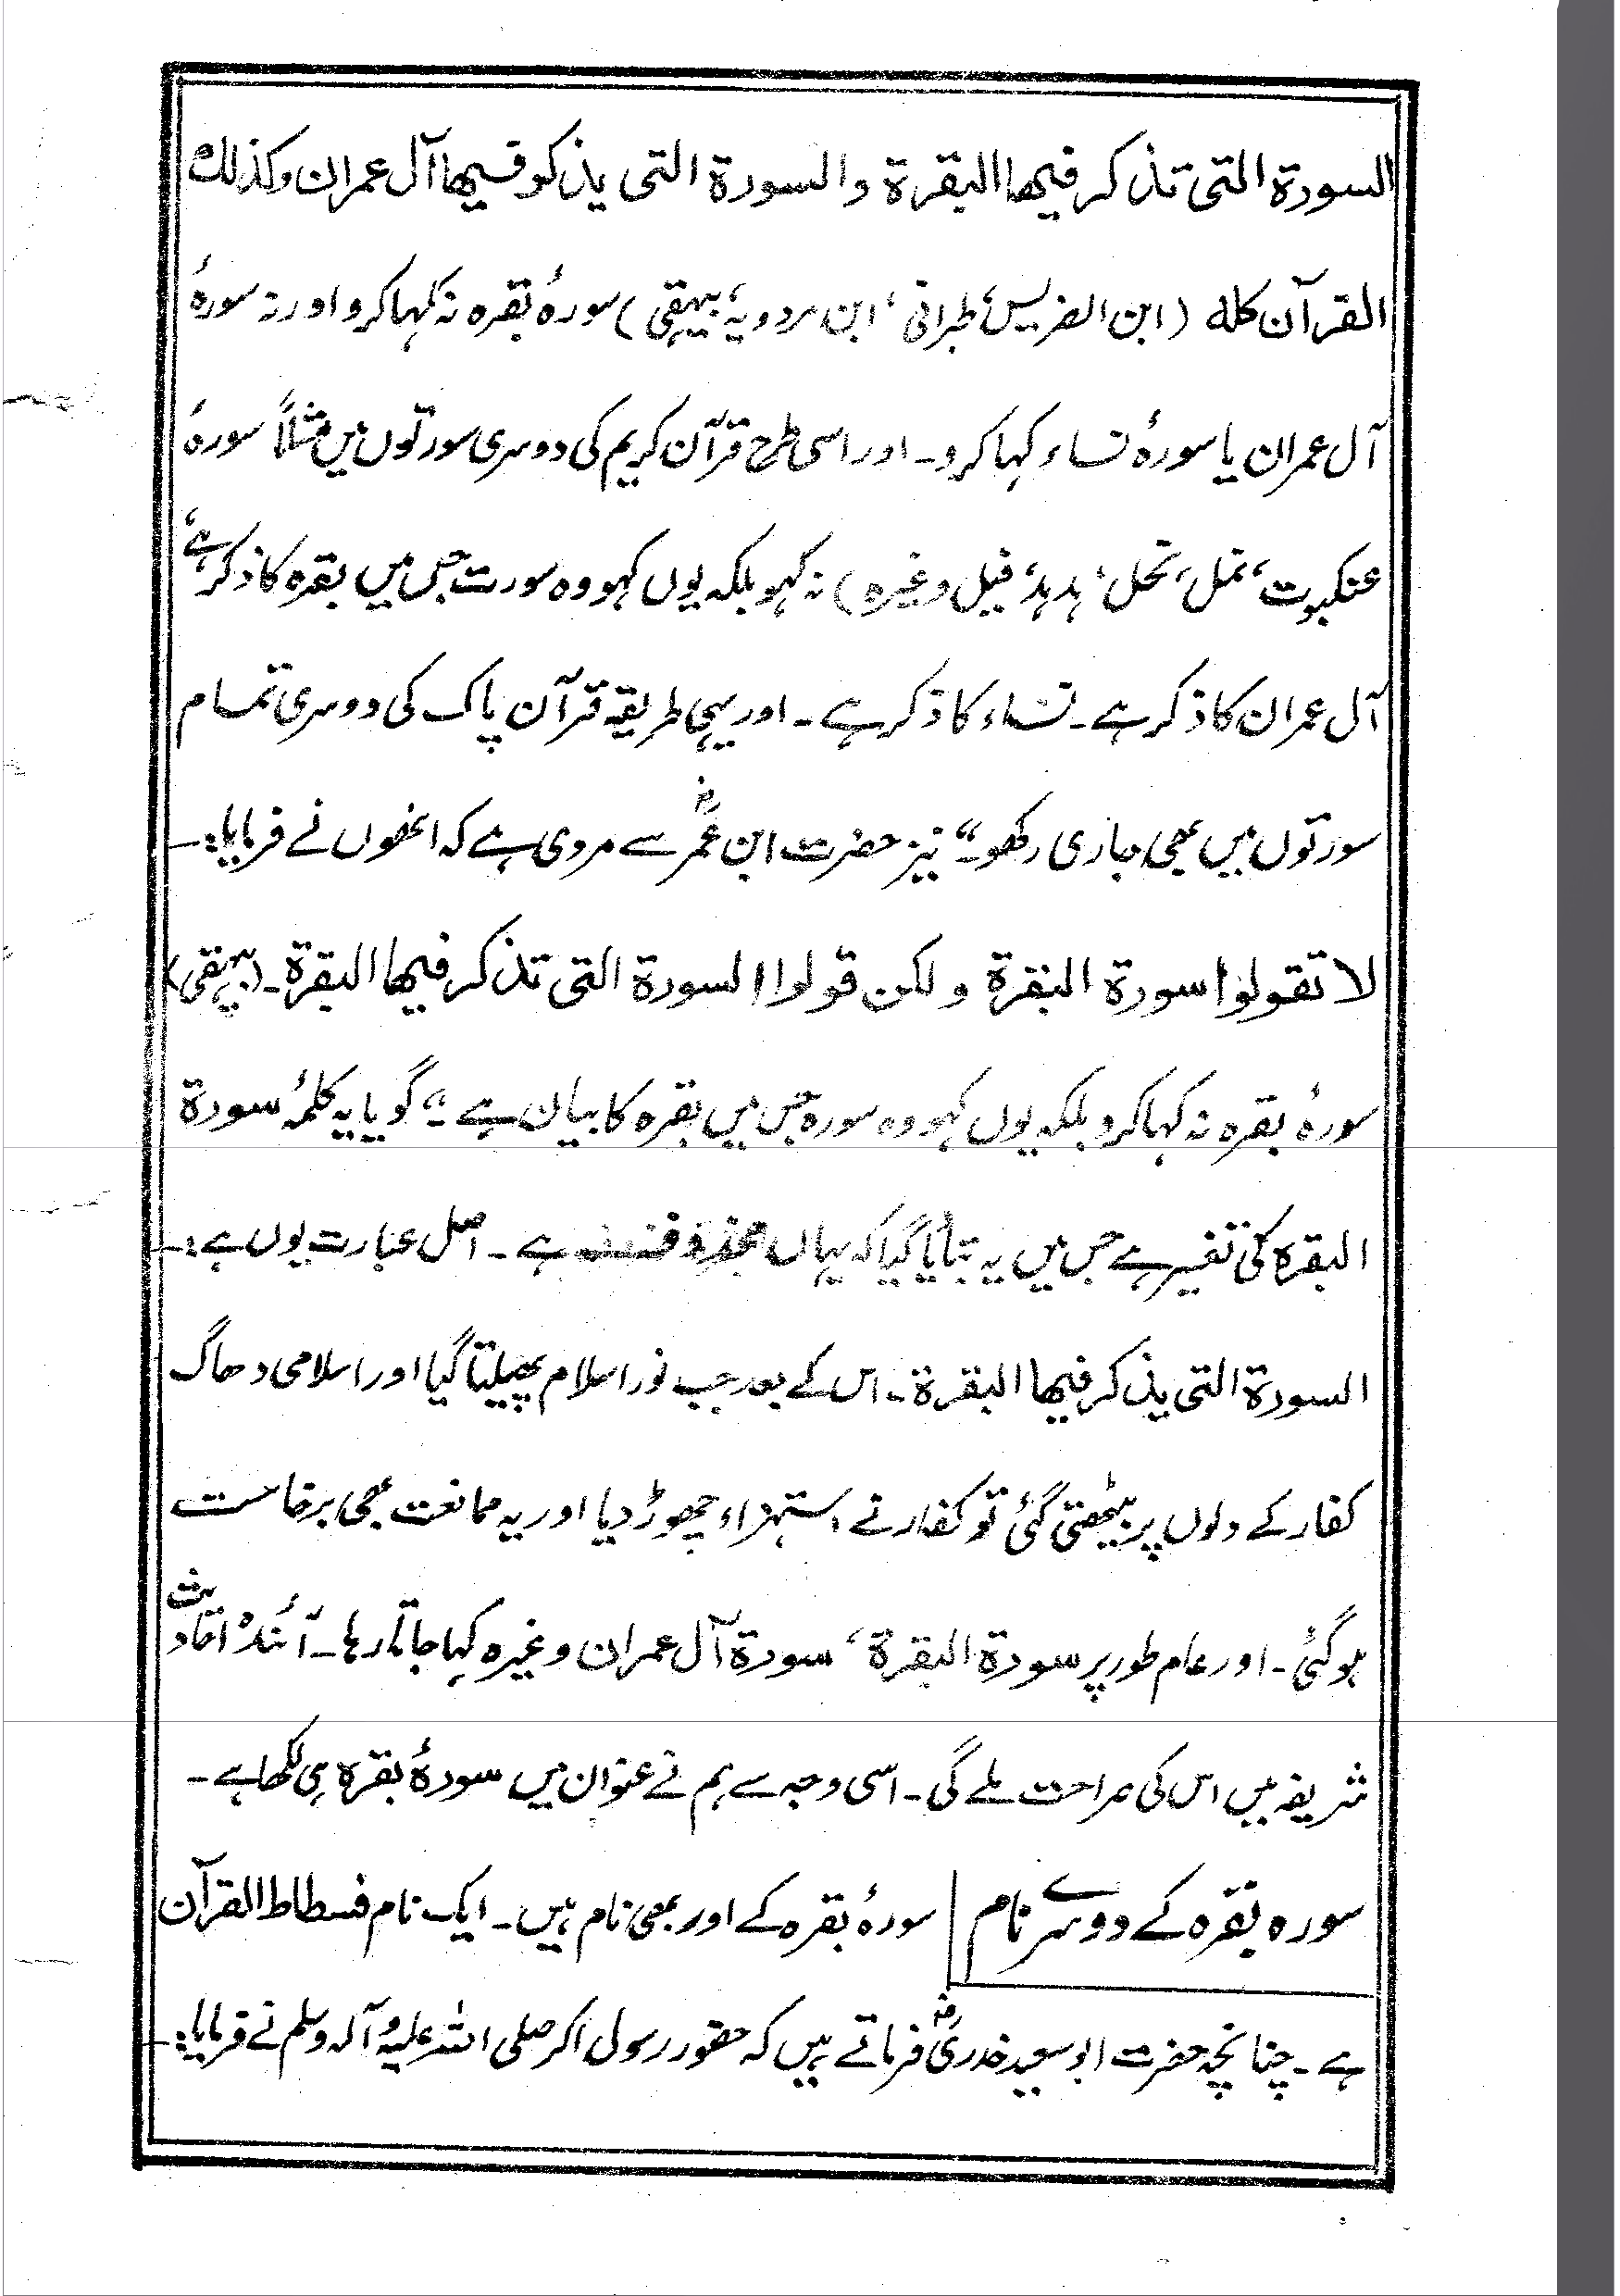 السورة التى تذكر فيها البقرة والسورة التى يذكر فيها آل عمران وكذلك
القرآن كله (ابن الضریس، طبرانی، ابن مردویہ، بیہقی) سورۂ بقرہ نہ کہا کرو اور نہ سورۂ
آل عمران یا سورۂ نساء کہا کرو۔ اور اسی طرح قرآن کریم کی دوسری سورتوں میں مثلاً سورۂ
عنکبوت، نمل، نحل، ہدہد، فیل وغیرہ) نہ کہو بلکہ یوں کہو وہ سورت جس میں بقرہ کا ذکر ہے،
آل عمران کا ذکر ہے۔ نساء کا ذکر ہے۔ اور یہی طریقہ قرآن پاک کی دوسری تمام
سورتوں میں بھی جاری رکھو۔“ نیز حضرت ابن عمرؓ سے مروی ہے کہ انھوں نے فرمایا:۔
لا تقولوا سورة البقرة ولكن قولوا السورة التى تذكر فيها البقرة۔ (بیہقی)
سورۂ بقرہ نہ کہا کرو بلکہ یوں کہو وہ سورہ جس میں بقرہ کا بیان ہے“۔ گویا یہ کلمۂ سورة
البقرہ کی تفسیر ہے جس میں یہ بتایا گیا کہ یہاں محذوف ہے۔ اصل عبارت یوں ہے:۔
السورة التى يذكر فيها البقرة۔ اس کے بعد جب نور اسلام پھیلتا گیا اور اسلامی دھاگ
کفار کے دلوں پر بیٹھتی گئی تو کفار نے استہزاء چھوڑ دیا اور یہ ممانعت بھی برخاست
ہو گئی۔ اور عام طور پر سورة البقرة، سورة آل عمران وغیرہ کہا جاتا رہا۔ آئندہ احادیث
شریفہ میں اس کی صراحت ملے گی۔ اسی وجہ سے ہم نے عنوان میں سورۂ بقرہ ہی لکھا ہے۔
سورہ بقرہ کے دوسرے نام | سورۂ بقرہ کے اور بھی نام ہیں۔ ایک نام فسطاط القرآن
ہے۔ چنانچہ حضرت ابو سعید خدریؓ فرماتے ہیں کہ حضور رسول اکرم صلی اللہ علیہ وآلہ وسلم نے فرمایا:۔